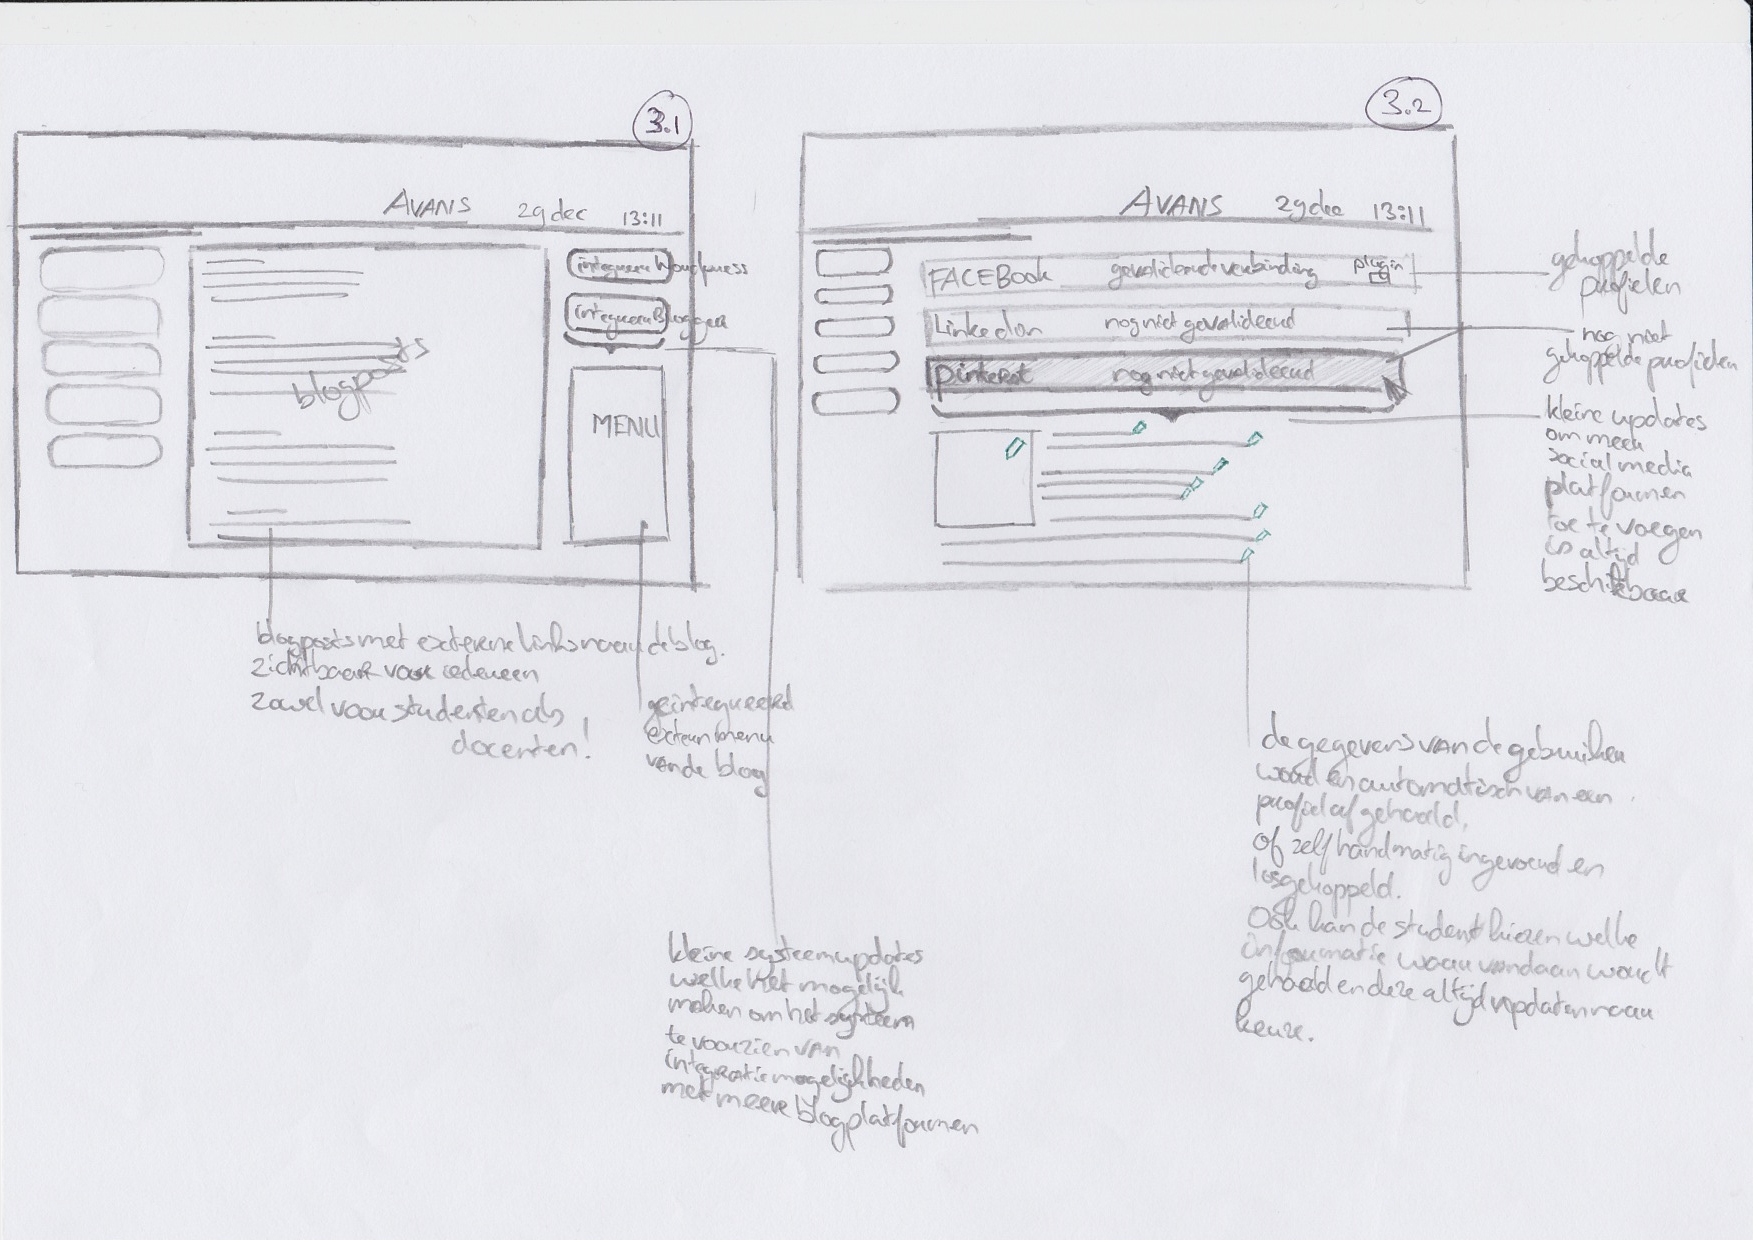 3.1
AVANS 29 dec 13:11
integreer Wordpress
integreer Blogger
blogposts
MENU
blogposts met externe links naar de blog.
zichtbaar voor iedereen
zowel voor studenten als
docenten!
geintegreerd
extern menu
van de blog
kleine systeemupdates
welke het mogelijk
maken om het systeem
te voorzien van
integratie mogelijkheden
met meere blogplatformen
3.2
AVANS 29 dec 13:11
FACEBook gevalideerde verbinding plugin
Linkedan nog niet gevalideerd
pinterest nog niet gevalideerd
gekoppelde
profielen
nog niet
gekoppelde profielen
kleine updates
om meer
social media
platformen
toe te voegen
is altijd
beschikbaar
de gegevens van de gebruiker
worden automatisch van een
profiel af gehaald,
of zelf handmatig ingevoerd en
losgekoppeld.
Ook kan de student kiezen welke
informatie waar vandaan wordt
gehaald en deze altijd updaten naar
keuze.